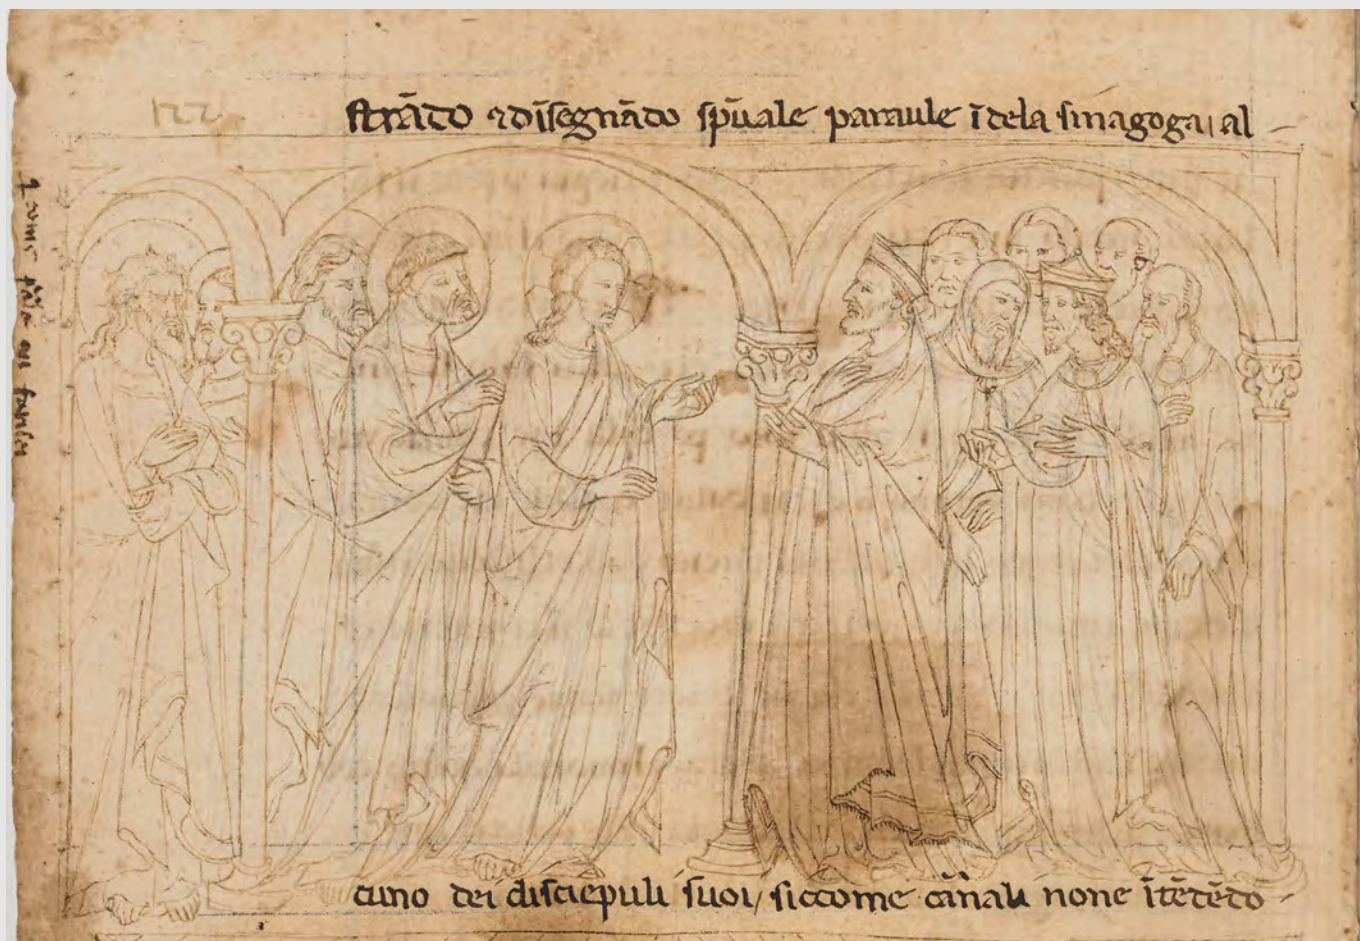 122
strãdo ⁊ disegnãdo spũale paraule ĩ dela sinagoga, al
cuno dei disciepuli suoi, siccome carñali none ĩtẽdẽdo